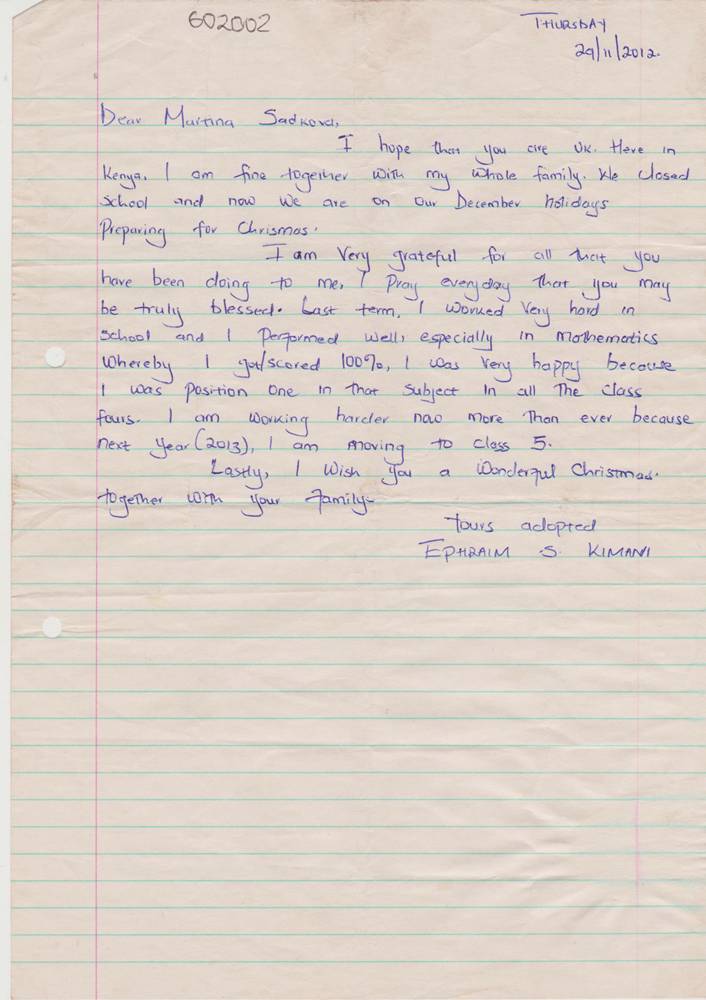 602002
THURSDAY
29/11/2012.
Dear Martina Sadkova,
I hope that you are OK. Here in
Kenya, I am fine together with my whole family. We closed
school and now we are on our December holidays
Preparing for Chrismas.
I am Very grateful for all that you
have been doing to me, I Pray everyday that you may
be truly blessed. Last term, I worked Very hard in
school and I Performed well, especially in mathematics
whereby I got/scored 100%, I was very happy because
I was Position one in that subject in all the class
fours. I am working harder now more than ever because
next year (2013), I am moving to class 5.
Lastly, I wish you a wonderful Christmas.
together with your family-
Yours adopted
EPHRAIM S. KIMANI